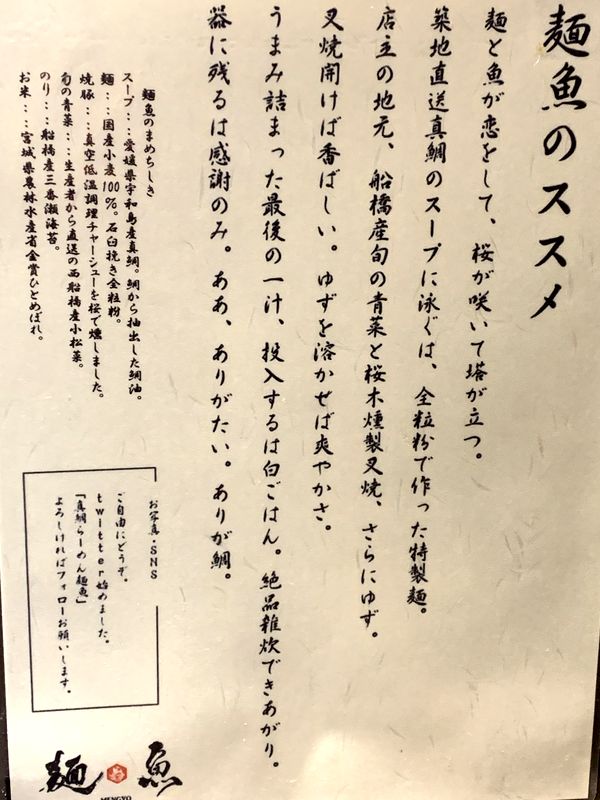 麺魚のススメ
麺と魚が恋をして、桜が咲いて塔が立つ。
築地直送真鯛のスープに泳ぐは、全粒粉で作った特製麺。
店主の地元、船橋産旬の青菜と桜木燻製叉焼、さらにゆず。
叉焼開けば香ばしい。ゆずを溶かせば爽やかさ。
うまみ詰まった最後の一汁、投入するは白ごはん。絶品雑炊できあがり。
器に残るは感謝のみ。ああ、ありがたい。ありが鯛。
麺魚のまめちしき
スープ：：愛媛県宇和島産真鯛。鯛から抽出した鯛油。
麺：：国産小麦100%。石臼挽き全粒粉。
焼豚：：真空低温調理チャーシューを桜で燻しました。
旬の青菜：：生産者から直送の西船橋産小松菜。
のり：：船橋産三番瀬海苔。
お米：：宮城県農林水産省金賞ひとめぼれ。
お写真・SNS
ご自由にどうぞ。
twitter始めました。
「真鯛らーめん麺魚」
よろしければフォローお願いします。
麺魚
MENGYO